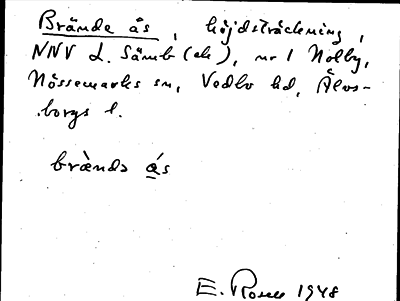 Brände ås, höjdsträckning,
NNV L. Sämb (ek), nr 1 Nolby,
Nössemarks sn, Vedbo hd, Älvs-
borgs l.
bràndə ás
E. Rosell 1948